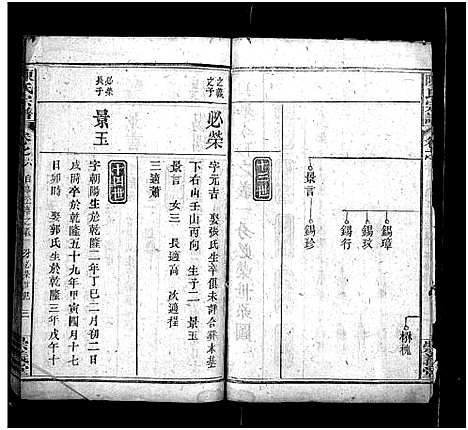 陳氏宗譜
景言
錫璋
錫玟
錫行
錫珍
十三世
之義
之子
必榮
字元吉 娶張氏生卒俱未詳合葬木基
下右山壬山丙向 生子二 景玉
景言 女三 長適高 次適程
三適蕭
十四世
必榮
長子
景玉
字朝陽生於乾隆二年丁巳二月初二日
戌時卒於乾隆五十九年甲寅四月十七
日卯時 娶郭氏生於乾隆三年戊午十
陳氏宗譜